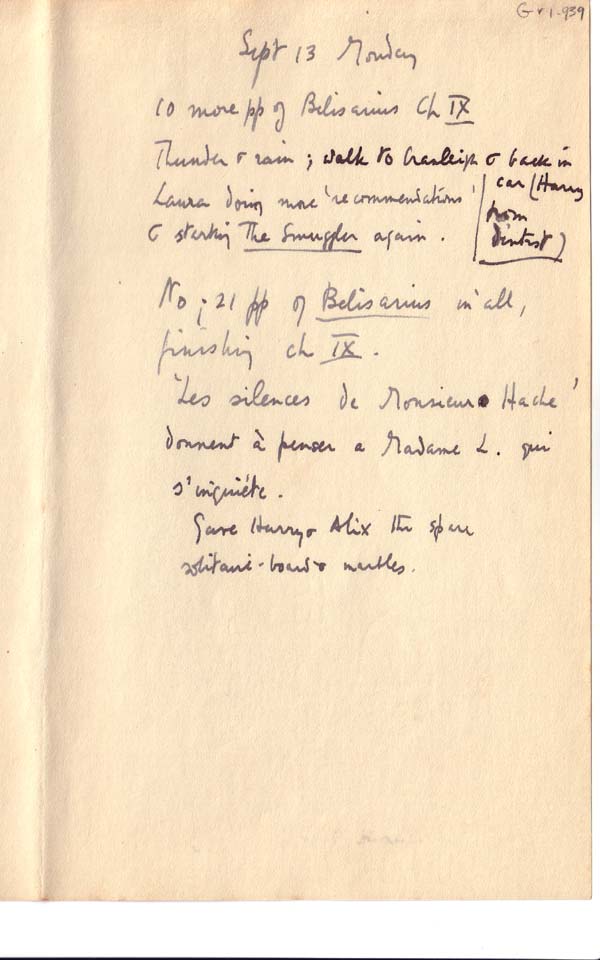 G v 1-939
Sept 13 Monday
10 more pp of Belisarius Ch IX
Thunder & rain ; walk to Cranleigh & back in
car (Harry
from
dentist)
Laura doing more 'recommendations'
& starting The Smuggler again .
No ; 21 pp of Belisarius in all,
finishing ch IX .
'Les silences de Monsieur Hache'
donnent à penser a Madame L. qui
s'inquiéte .
Gave Harry & Alix the spare
solitaire-board & marbles.